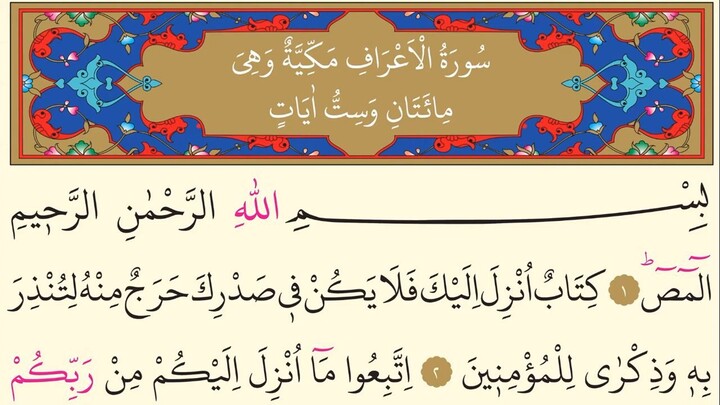 سُورَةُ الْاَعْرَافِ مَكِّيَّةٌ وَهِىَ
مِائَتَانِ وَسِتُّ اٰيَاتٍ
بِسْمِ اللّٰهِ الرَّحْمٰنِ الرَّح۪يمِ
الٓمٓصٓۜ ﴿١﴾ كِتَابٌ اُنْزِلَ اِلَيْكَ فَلَا يَكُنْ ف۪ى صَدْرِكَ حَرَجٌ مِنْهُ لِتُنْذِرَ
بِه۪ وَذِكْرٰى لِلْمُؤْمِن۪ينَ ﴿٢﴾ اِتَّبِعُوا مَٓا اُنْزِلَ اِلَيْكُمْ مِنْ رَبِّكُمْ